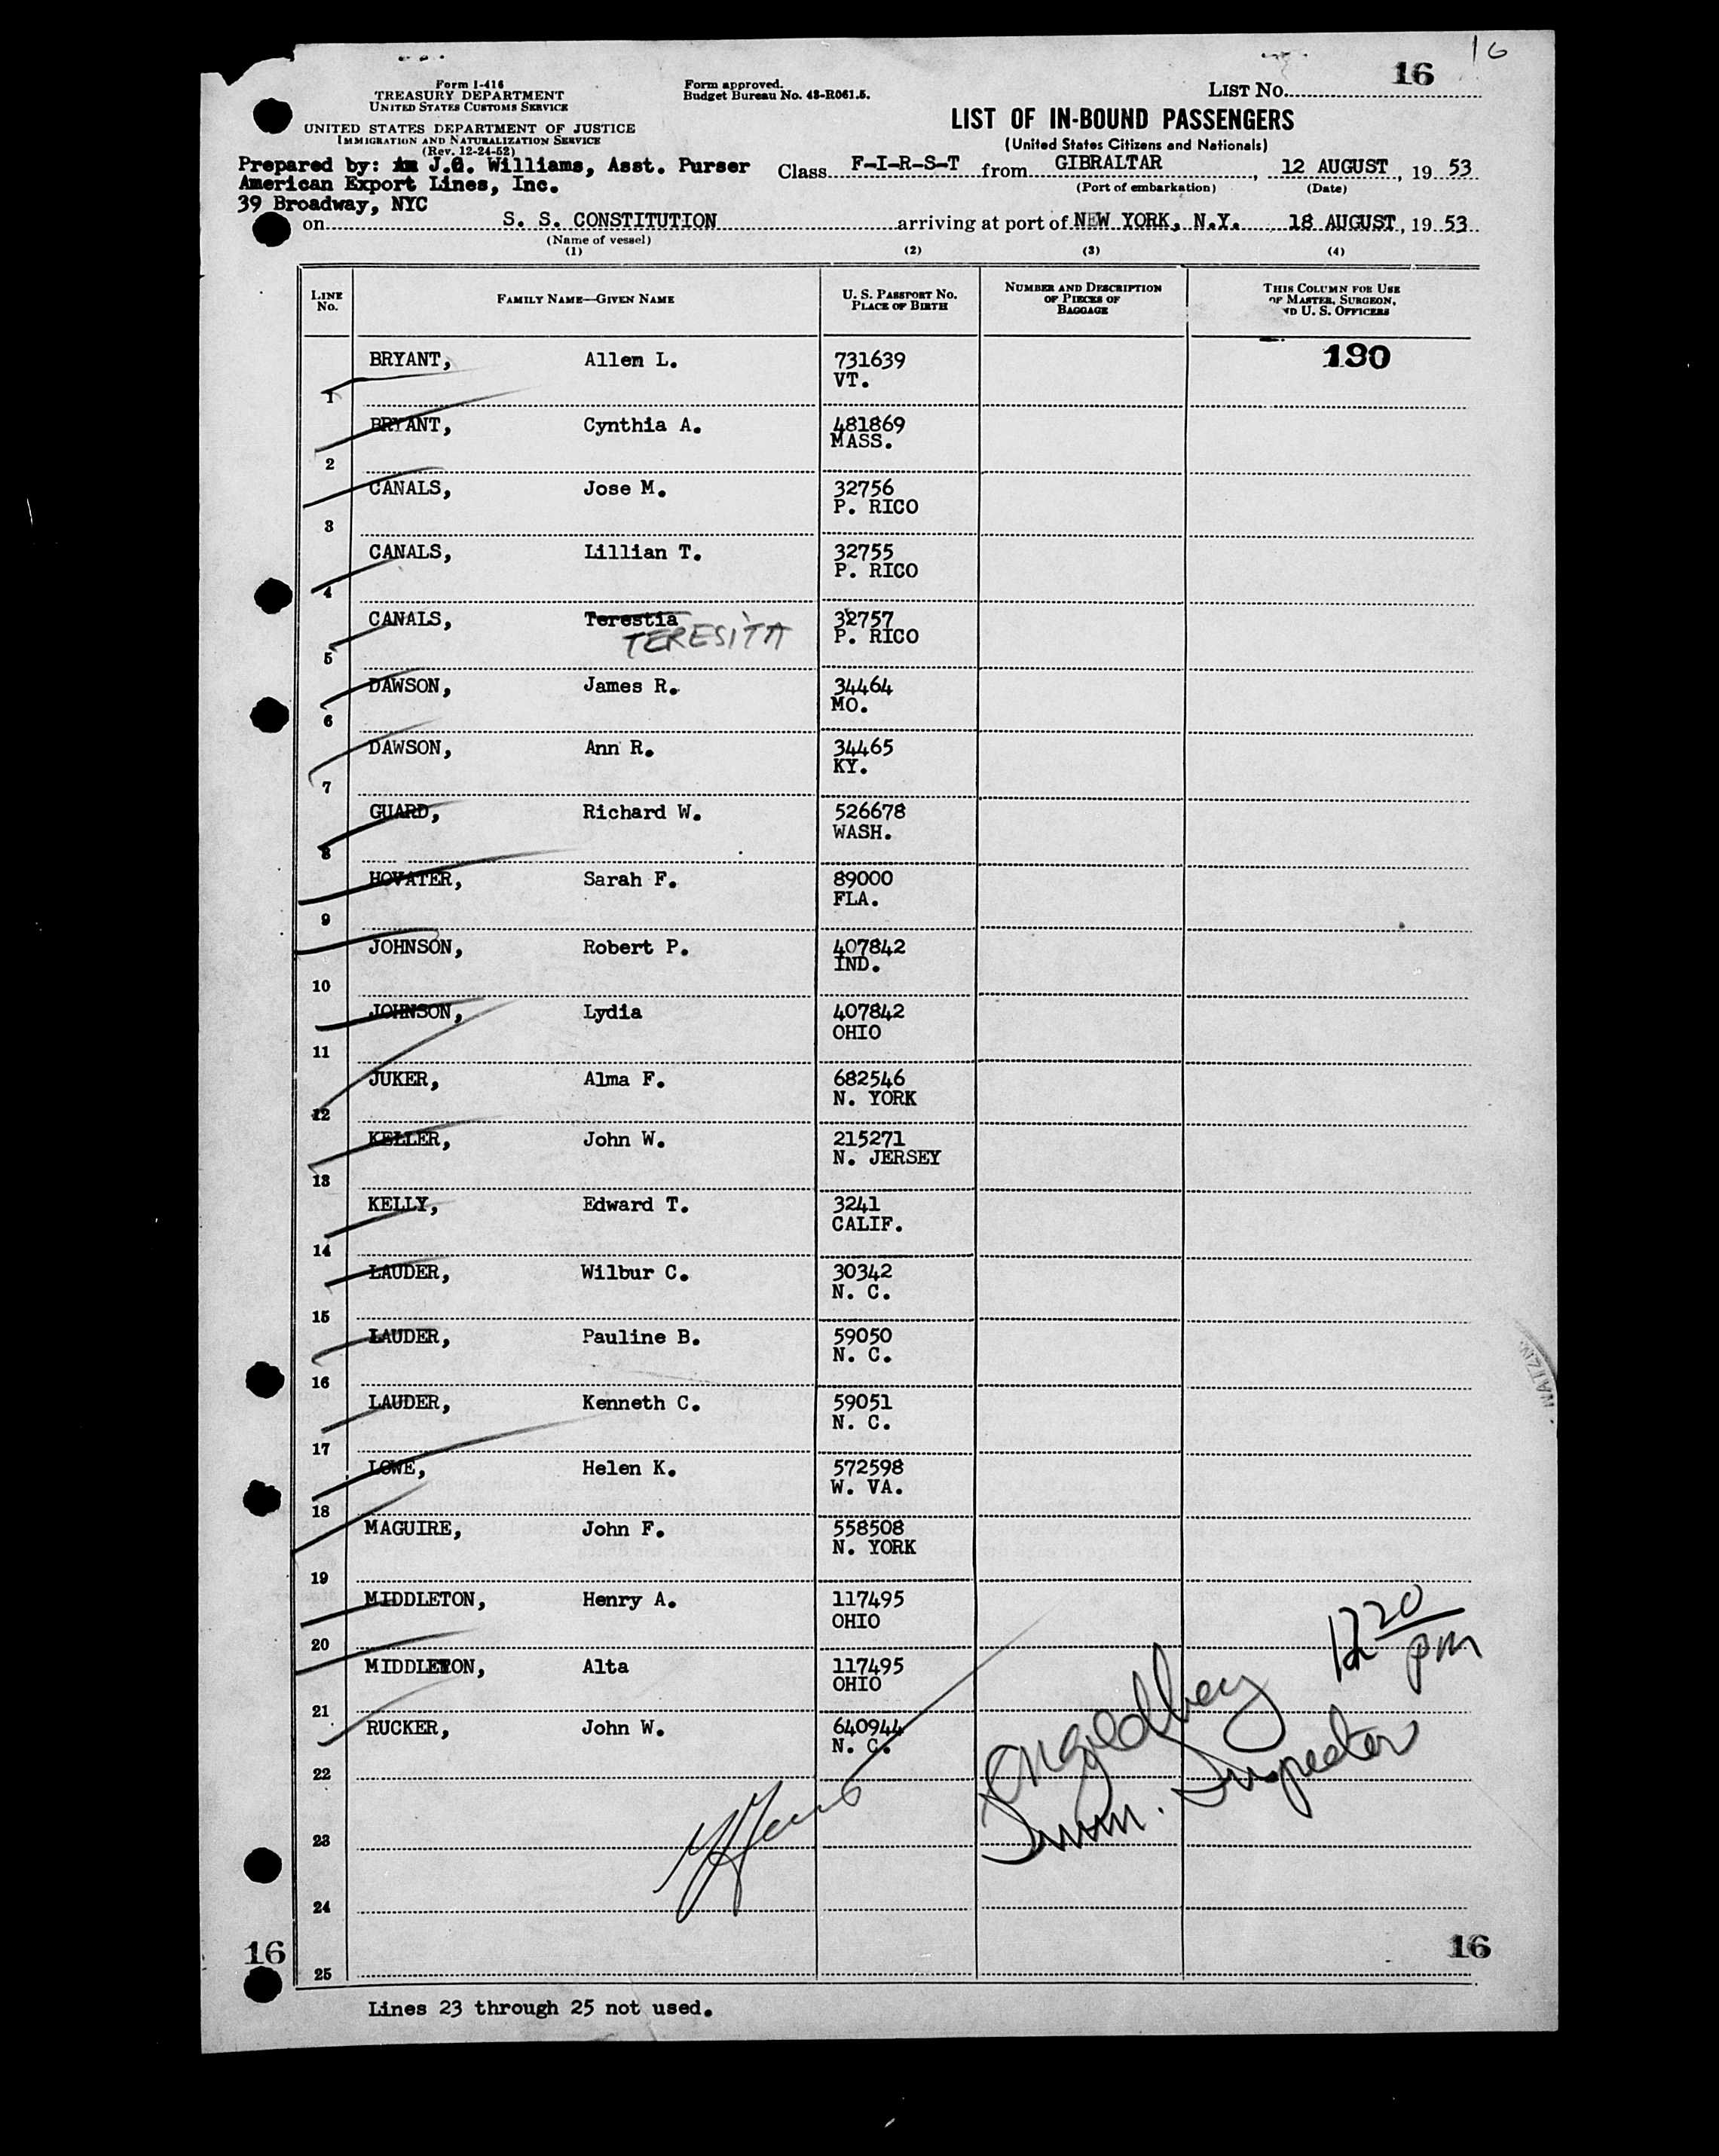 16
Form I-416
TREASURY DEPARTMENT
UNITED STATES CUSTOMS SERVICE
Form approved.
Budget Bureau No. 43-R061.5.
LIST No. 16
UNITED STATES DEPARTMENT OF JUSTICE
IMMIGRATION AND NATURALIZATION SERVICE
(Rev. 12-24-52)
LIST OF IN-BOUND PASSENGERS
(United States Citizens and Nationals)
Prepared by: J.G. Williams, Asst. Purser
American Export Lines, Inc.
39 Broadway, NYC
Class F-I-R-S-T from GIBRALTAR, 12 AUGUST, 19 53
(Port of embarkation) (Date)
on S. S. CONSTITUTION arriving at port of NEW YORK, N.Y. 18 AUGUST, 19 53
(Name of vessel)
(1) (2) (3) (4)
LINE No. FAMILY NAME—GIVEN NAME U. S. PASSPORT No. PLACE OF BIRTH NUMBER AND DESCRIPTION OF PIECES OF BAGGAGE THIS COLUMN FOR USE OF MASTER, SURGEON, ND U. S. OFFICERS
190
1 BRYANT, Allen L. 731639 VT.
2 BRYANT, Cynthia A. 481869 MASS.
3 CANALS, Jose M. 32756 P. RICO
4 CANALS, Lillian T. 32755 P. RICO
5 CANALS, Terestia TERESITA 32757 P. RICO
6 DAWSON, James R. 34464 MO.
7 DAWSON, Ann R. 34465 KY.
8 GUARD, Richard W. 526678 WASH.
9 HOVATER, Sarah F. 89000 FLA.
10 JOHNSON, Robert P. 407842 IND.
11 JOHNSON, Lydia 407842 OHIO
12 JUKER, Alma F. 682546 N. YORK
13 KELLER, John W. 215271 N. JERSEY
14 KELLY, Edward T. 3241 CALIF.
15 LAUDER, Wilbur C. 30342 N. C.
16 LAUDER, Pauline B. 59050 N. C.
17 LAUDER, Kenneth C. 59051 N. C.
18 LOWE, Helen K. 572598 W. VA.
19 MAGUIRE, John F. 558508 N. YORK
20 MIDDLETON, Henry A. 117495 OHIO
21 MIDDLETON, Alta 117495 OHIO
22 RUCKER, John W. 640944 N. C.
1220 pm
Imm. Inspector
23
24
25
16 16
Lines 23 through 25 not used.